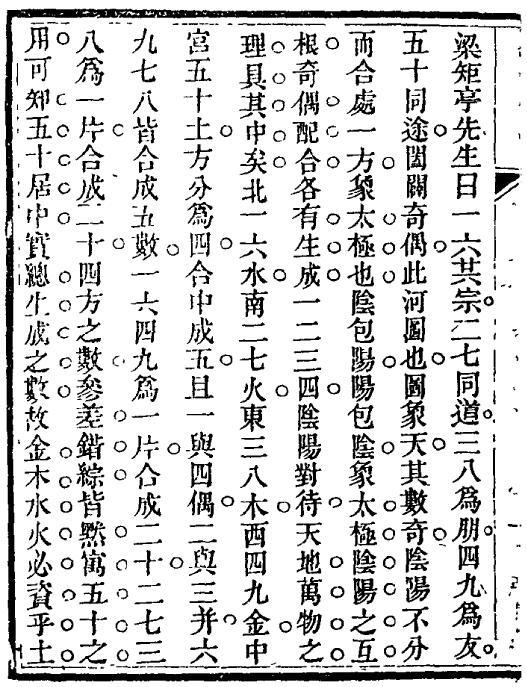 梁矩亭先生曰一六共宗二七同道三八爲朋四九爲友
五十同途闔闢奇偶此河圖也圖象天其數奇陰陽不分
而合處一方象太極也陰包陽陽包陰象太極陰陽之互
根奇偶配合各有生成一二三四陰陽對待天地萬物之
理具其中矣北一六水南二七火東三八木西四九金中
宮五十土方分爲四合中成五且一與四偶二與三并六
九七八皆合成五數一六四九爲一片合成二十二七三
八爲一片合成二十四方之數參差錯綜皆黙寓五十之
用可知五十居中實總生成之數故金木水火必資乎土